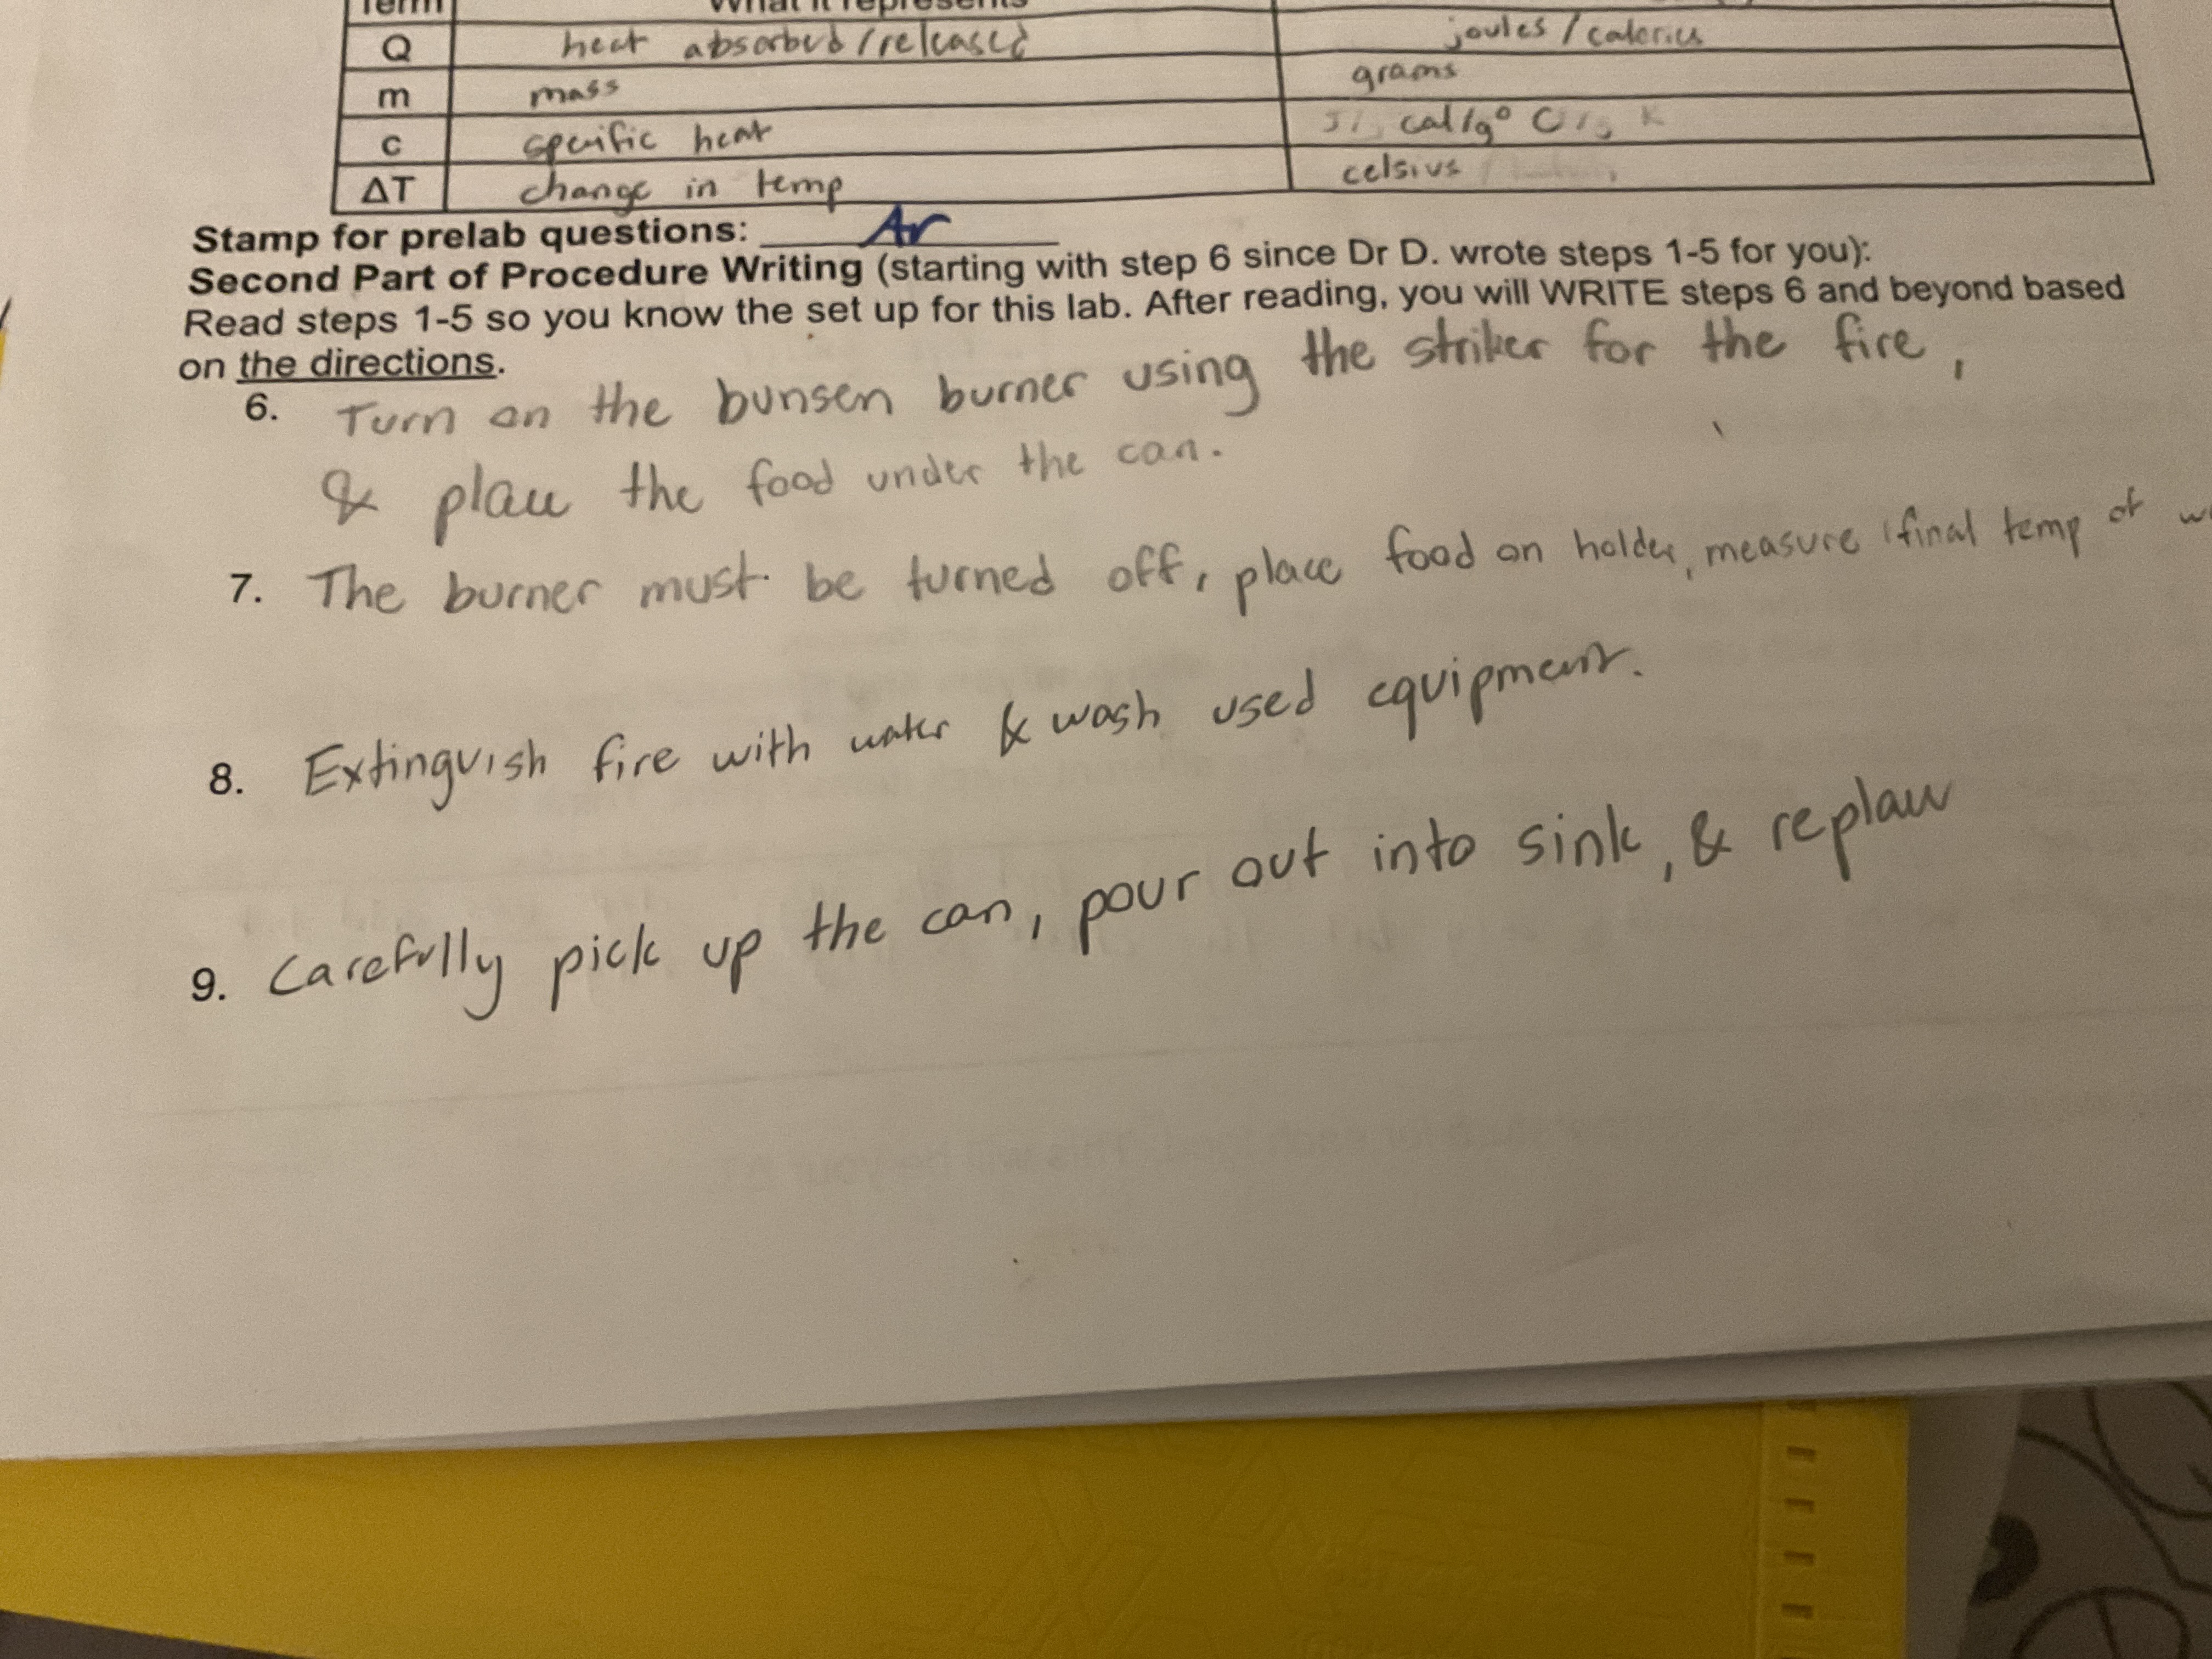 Term What it represents
Q heat absorbed/released joules/calories
m mass grams
c specific heat J/ cal/g° C K
ΔT change in temp celsius
Stamp for prelab questions: Ar
Second Part of Procedure Writing (starting with step 6 since Dr D. wrote steps 1-5 for you):
Read steps 1-5 so you know the set up for this lab. After reading, you will WRITE steps 6 and beyond based
on the directions.
6. Turn on the bunsen burner using the striker for the fire,
& place the food under the can.
7. The burner must be turned off, place food on holder, measure final temp of
8. Extinguish fire with water & wash used equipment.
9. Carefully pick up the can, pour out into sink, & replace